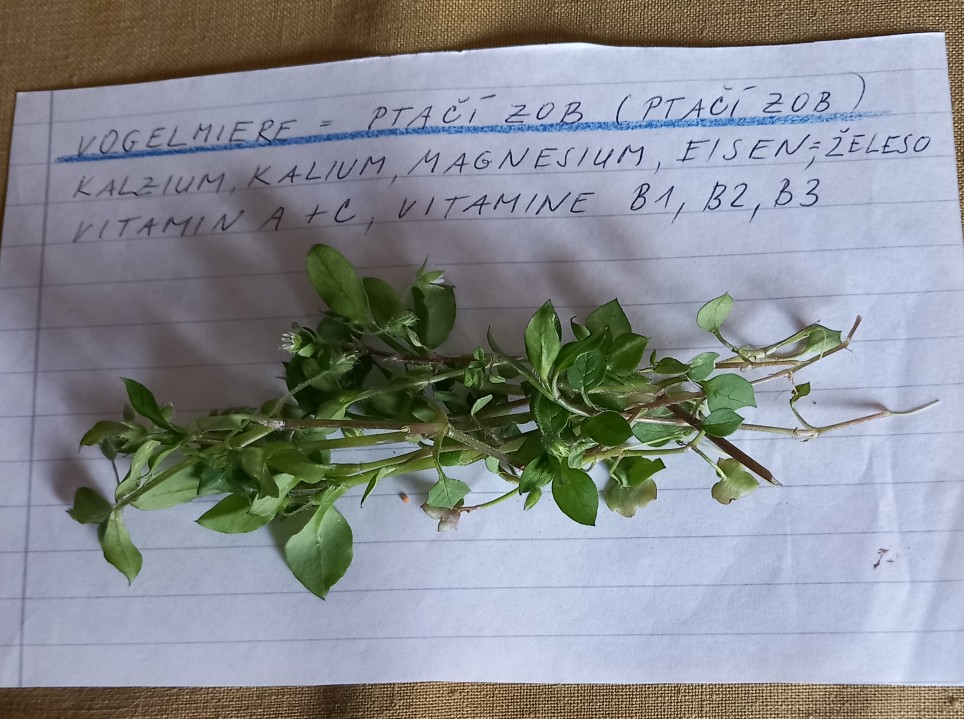 VOGELMIERE = PTAČÍ ZOB (PTAČÍ ZOB)
KALZIUM, KALIUM, MAGNESIUM, EISEN=ŽELESO
VITAMIN A+C, VITAMINE B1, B2, B3